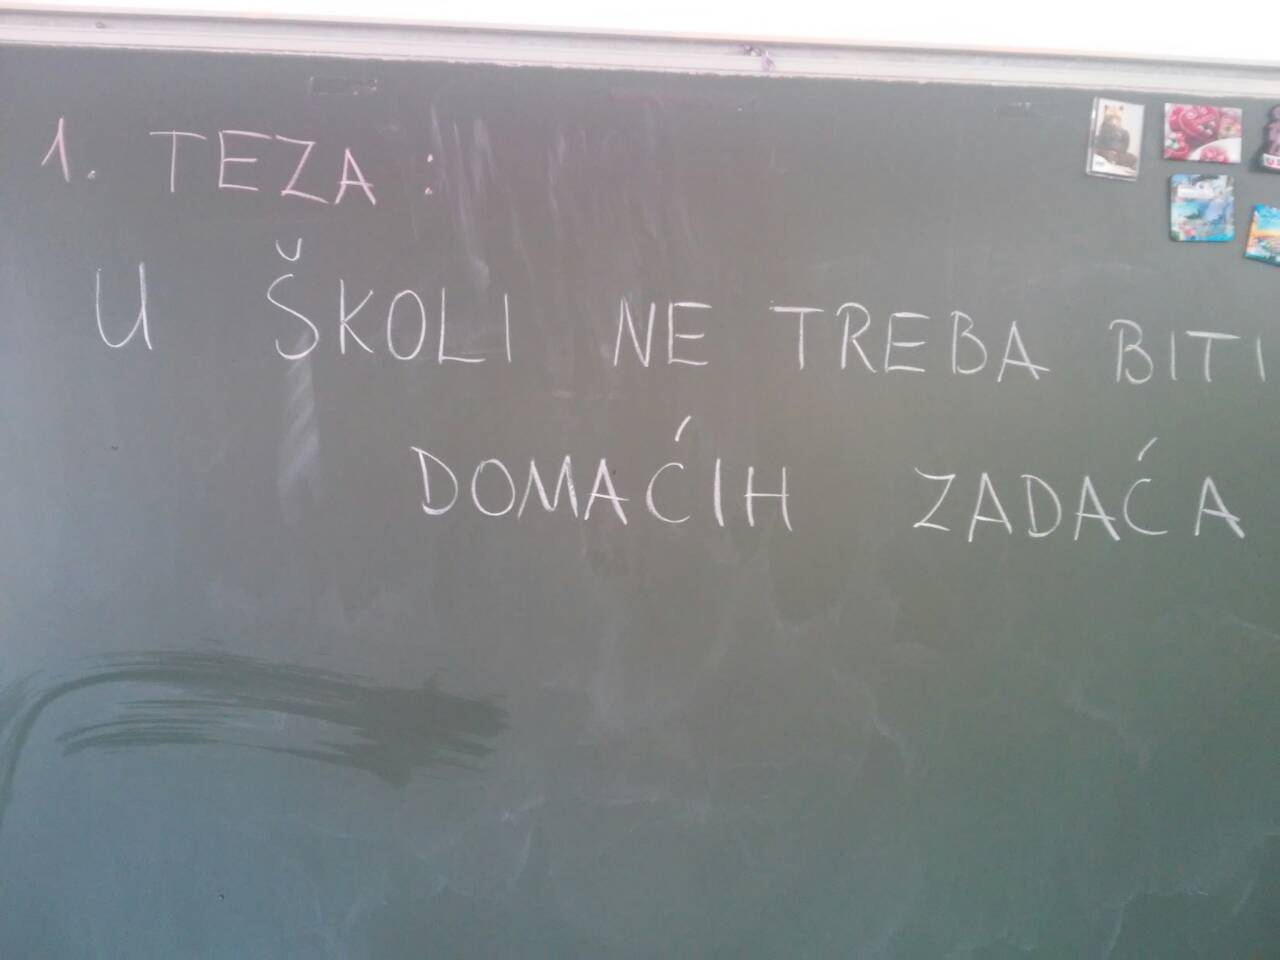 1. TEZA :
U ŠKOLI NE TREBA BITI
DOMAĆIH ZADAĆA